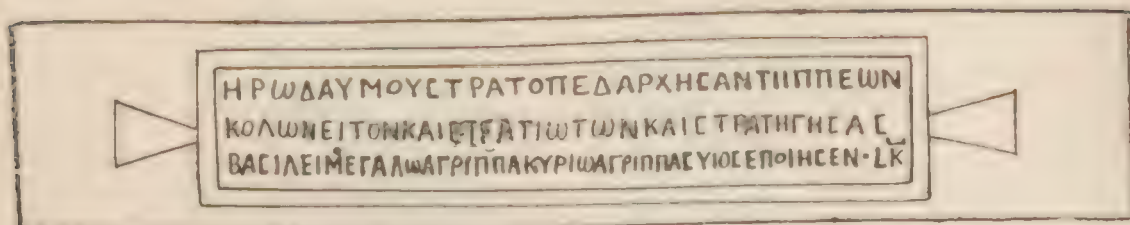 ΗΡѠΔΑΥΜΟΥϹΤΡΑΤΟΠΕΔΑΡΧΗϹΑΝΤΙΙΠΠΕѠΝ
ΚΟΛѠΝΕΙΤΟΝΚΑΙϹΤΡΑΤΙѠΤѠΝΚΑΙϹΤΡΑΤΗΓΗϹΑϹ
ΒΑϹΙΛΕΙΜΕΓΑΛѠΑΓΡΙΠΠΑΚΥΡΙѠΑΓΡΙΠΠΑϹΥΙΟϹΕΠΟΙΗϹΕΝ·LΚ